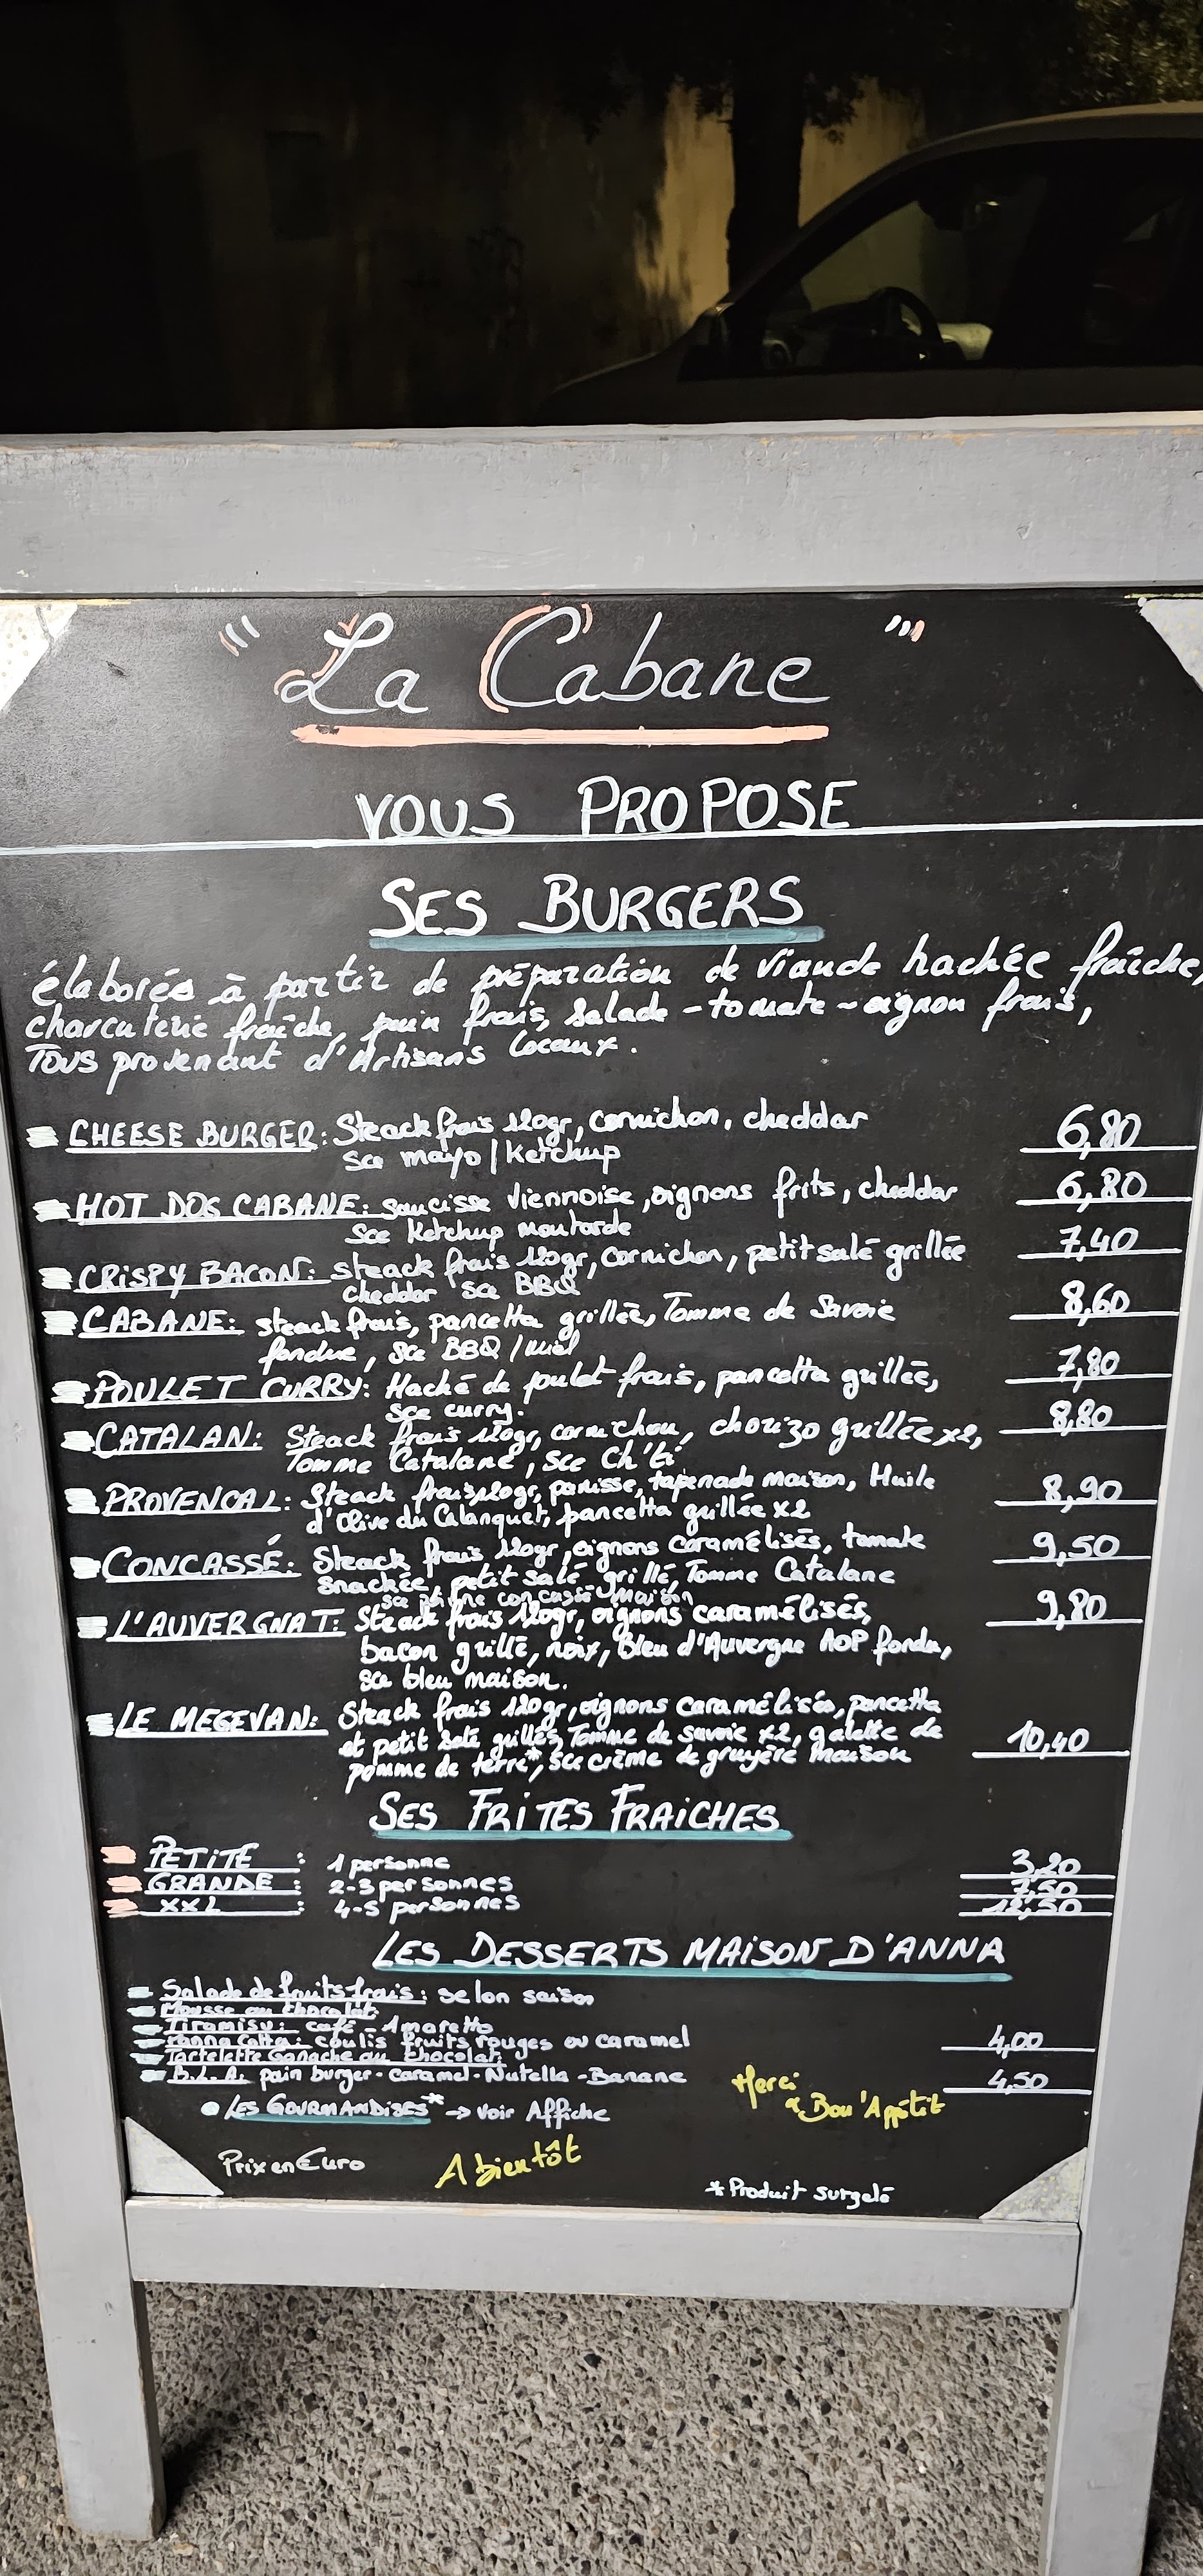 "La Cabane"
VOUS PROPOSE
SES BURGERS
élaborés à partir de préparation de viande hachée fraîche,
charcuterie fraîche, pain frais, salade - tomate - oignon frais,
Tous provenant d'Artisans Locaux.
CHEESE BURGER: Steack frais 120gr, cornichon, cheddar 6,80
sce mayo / Ketchup
HOT DOG CABANE: saucisse Viennoise, oignons frits, cheddar 6,80
sce Ketchup moutarde
CRISPY BACON: steack frais 120gr, cornichon, petit salé grillée 7,40
cheddar sce BBQ
CABANE: steack frais, pancetta grillée, Tomme de Savoie 8,60
fondue, sce BBQ / miel
POULET CURRY: Haché de pulet frais, pancetta grillée, 7,80
sce curry.
CATALAN: Steack frais 120gr, cornichon, chorizo grillée x2, 8,80
Tomme Catalane, sce Ch'ti
PROVENCAL: Steack frais 120gr, panisse, tapenade maison, Huile 8,90
d'Olive du Calanquet, pancetta grillée x2
CONCASSÉ: Steack frais 120gr, oignons caramélisés, tomate 9,50
snackée, petit salé grillé Tomme Catalane
concassé maison
L'AUVERGNAT: Steack frais 120gr, oignons caramélisés, 9,80
bacon grillé, noix, Bleu d'Auvergne AOP fondu,
sce bleu maison.
LE MEGEVAN: Steack frais 120gr, oignons caramélisés, pancetta
et petit salé grillés, Tomme de savoie x2, galette de 10,40
pomme de terre*, sce crème de gruyère maison
SES FRITES FRAICHES
PETITE : 1 personne 3,20
GRANDE : 2-3 personnes 7,50
XXL : 4-5 personnes 12,50
LES DESSERTS MAISON D'ANNA
Salade de fruits frais: selon saison
Mousse au Chocolat:
Tiramisu: café - Amaretto
Panna Cotta: coulis fruits rouges ou caramel 4,00
Tartelette Ganache au Chocolat:
B.L.A. pain burger - Caramel - Nutella - Banane 4,50
LES GOURMANDISES* → Voir Affiche
Merci
& Bon'Appétit
Prix en Euro
A bientôt
*Produit surgelé